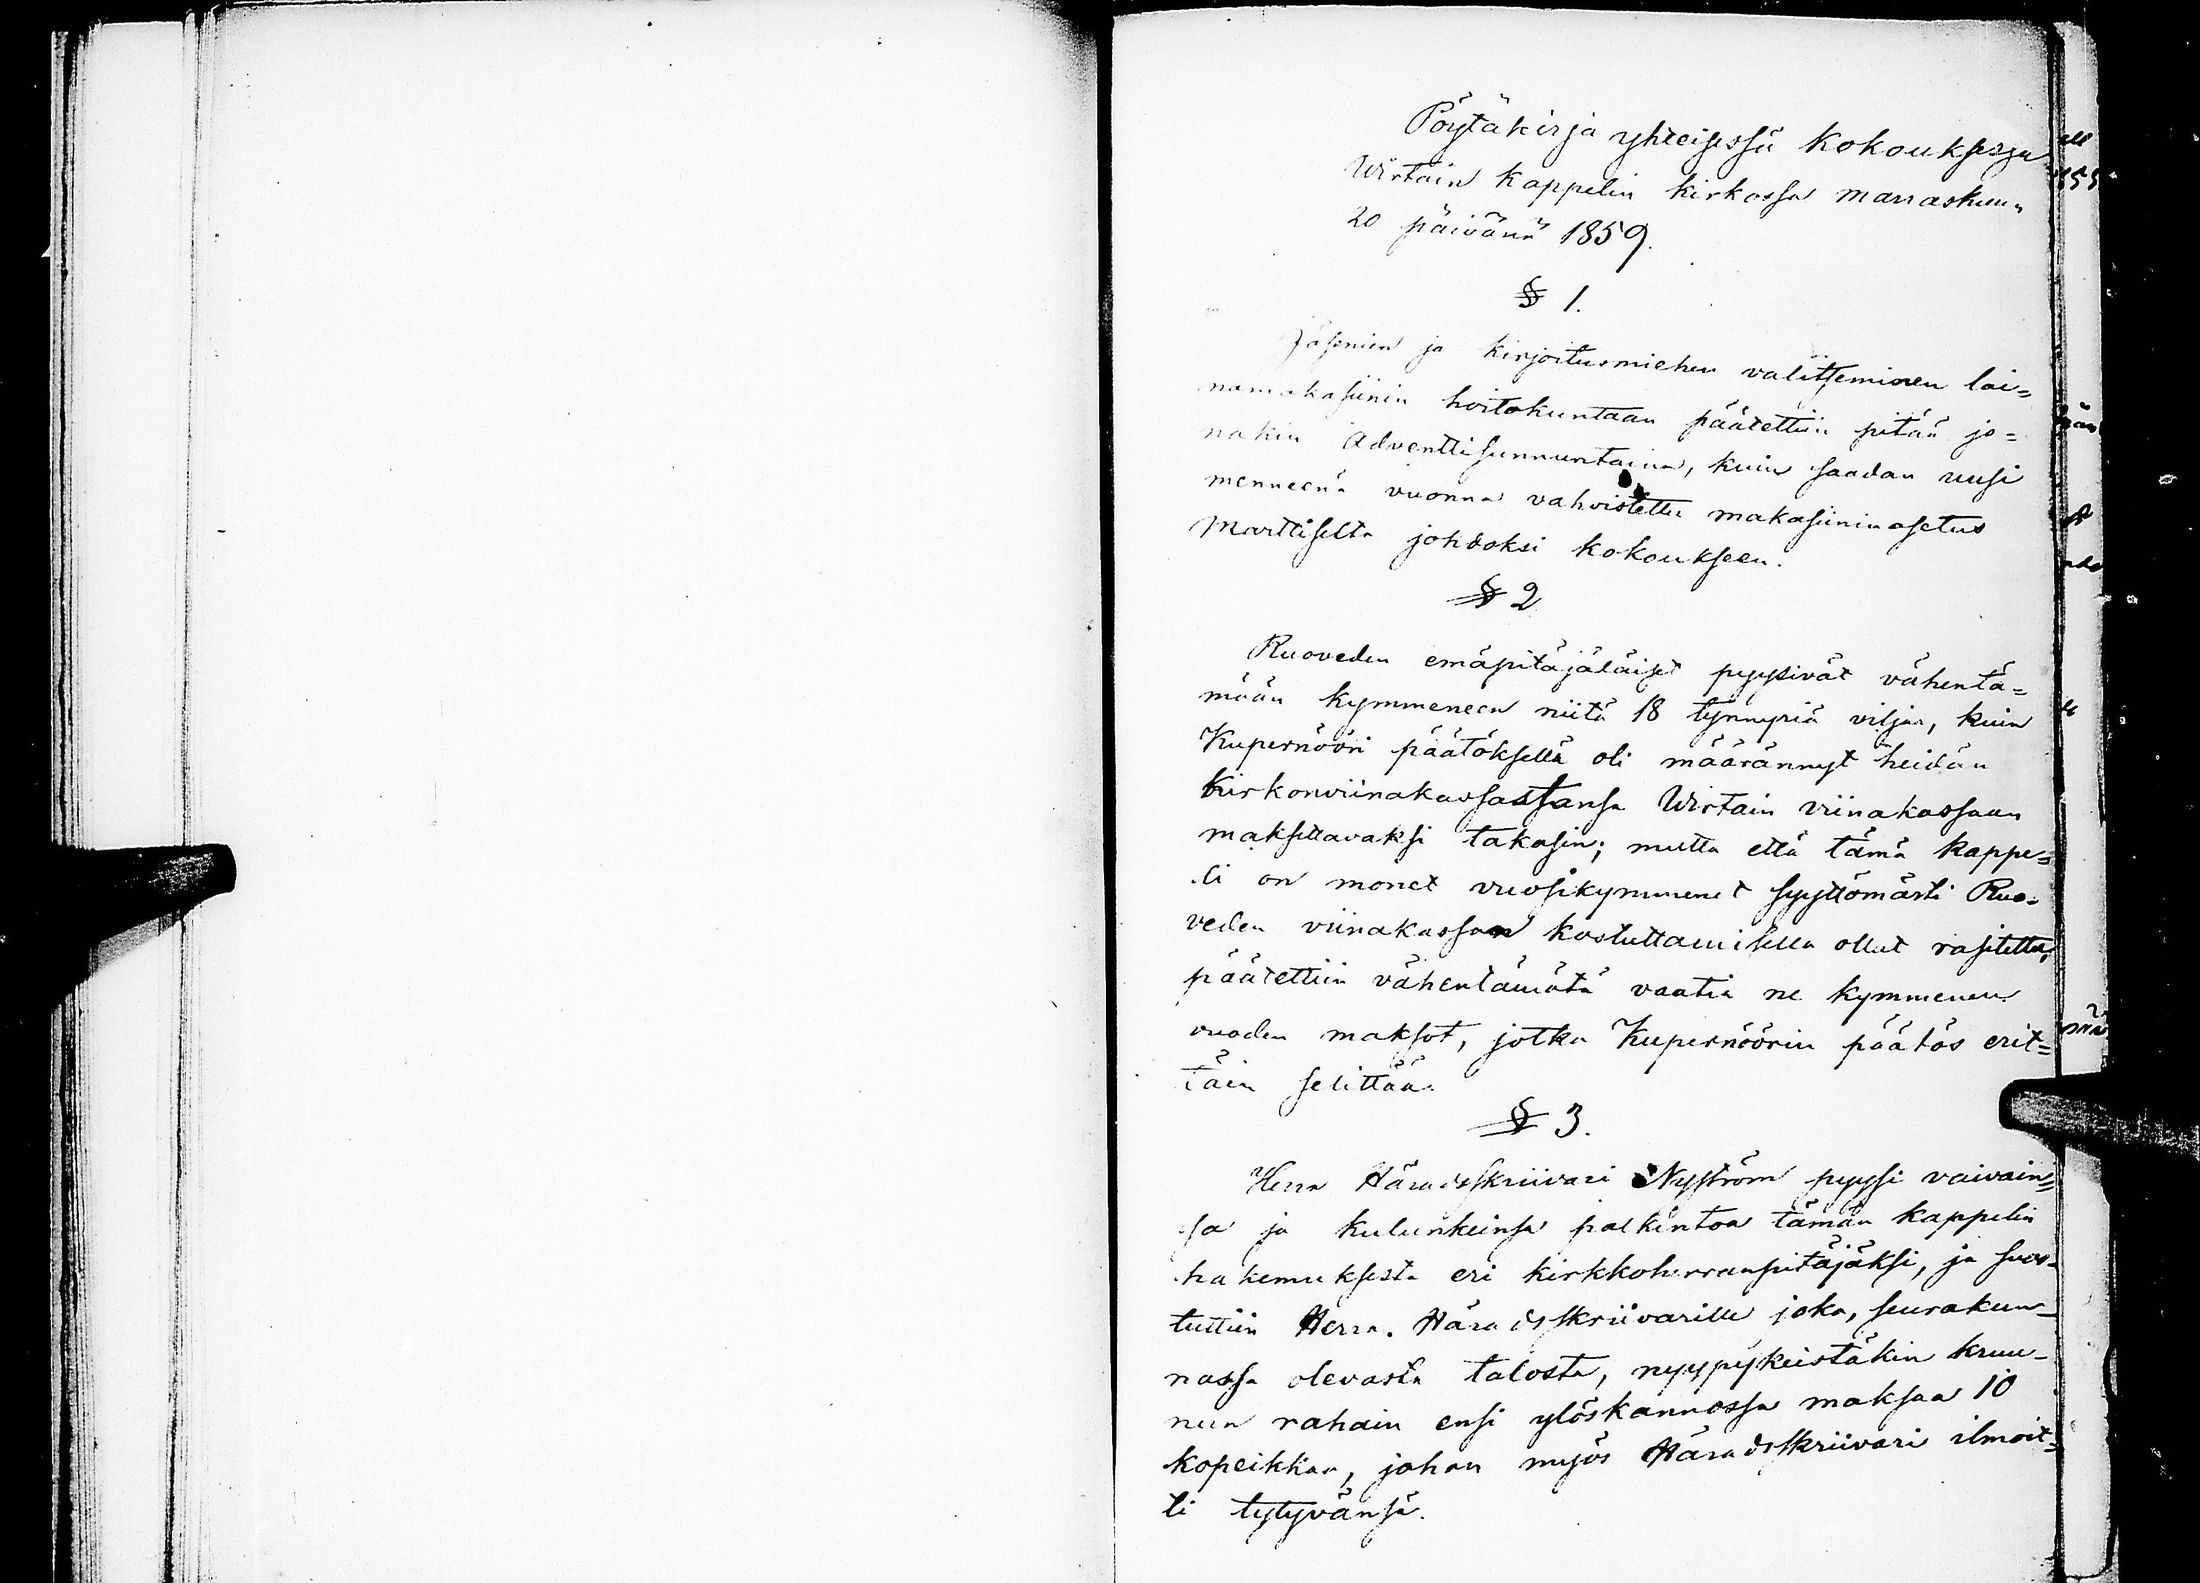 Pöytäkirja yhteisessä kokouksessa
Wirtain kappelin kirkossa marraskuun
20 päivänä 1859.
§ 1.
Jäsenien ja kirjoitusmiehen valitseminen lai=
namakasiinin hoitokuntaan päätettiin pitää jo=
nakin Adventtisunnuntaina, kuin saadan uusi
menneenä vuonna vahvistettu makasiininasetus
Marttiselta johdoksi kokoukseen.
§ 2
Ruoveden emäpitäjäläiset pyysivät vähentä=
mään kymmeneen niitä 18 tynnyriä viljaa, kuin
Kupernööri päätöksellä oli määrännyt heidän
kirkonviinakassastansa Wirtain viinakassaan
maksettavaksi takasin; mutta että tämä kappe=
li on monet vuosikymmenet syyttömästi Ruo=
veden viinakassan kostuttamisella ollut rasitettu,
päätettiin vähentämätä vaatia ne kymmenen
vuoden maksot, jotka Kupernöörin päätös erit=
täin selittää.
§ 3.
Herra Häradsskriivari Nyström pyysi vaivain=
sa ja kulunkeinsa palkintoa tämän kappelin
hakemuksesta eri kirkkoherranpitäjäksi, ja suos=
tuttiin Herra. Häradsskriivarille joka, seurakun=
nassa olevasta talosta, nyypykeistäkin kruu=
nun rahain ensi ylöskannossa maksaa 10
kopeikkaa, johon myös Häradsskriivari ilmoit=
ti tytyvänsä.